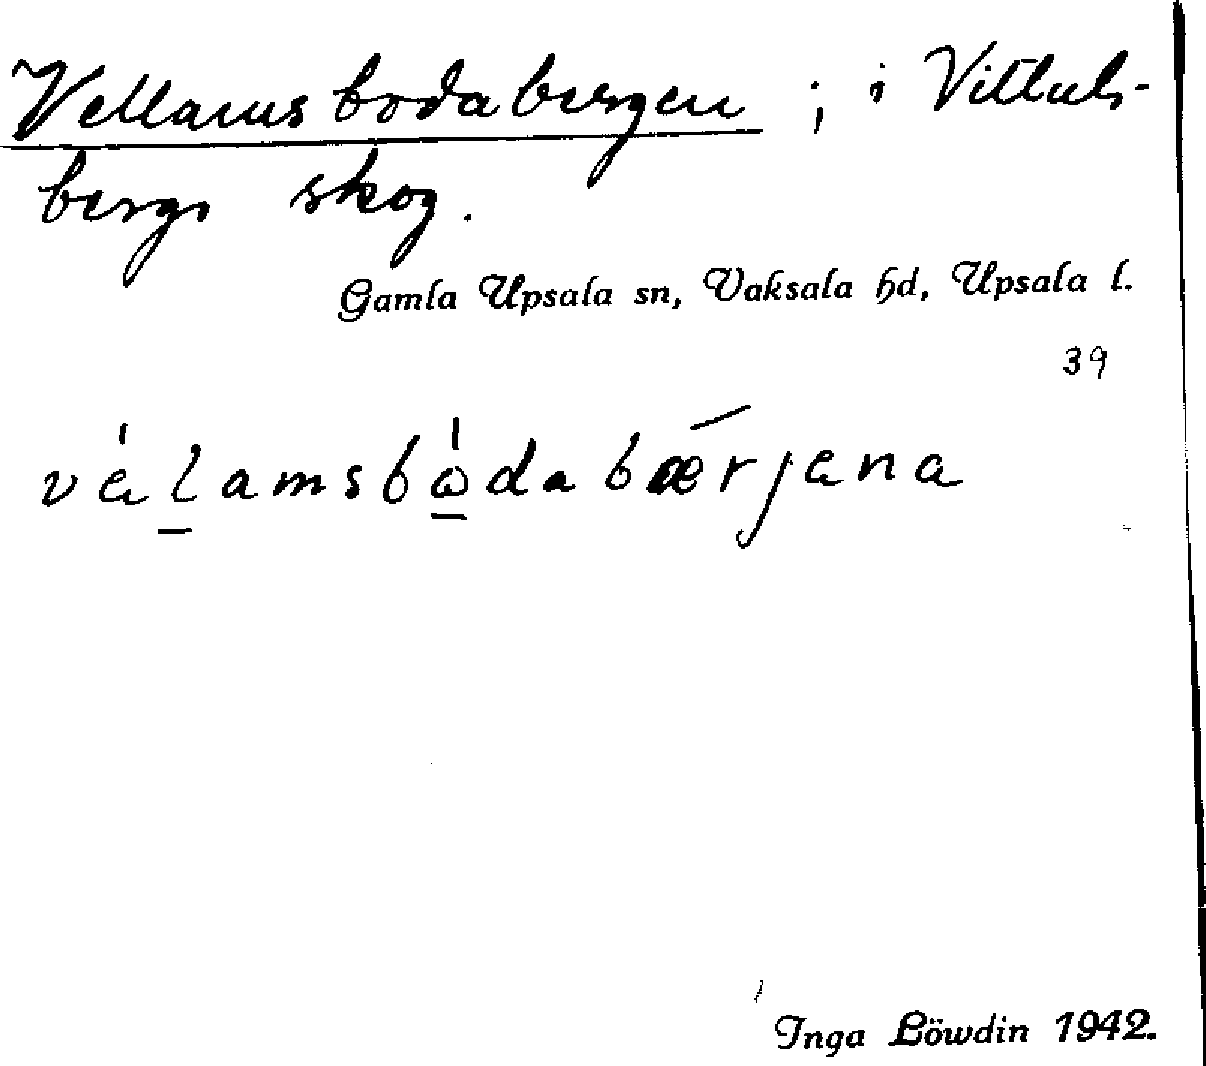 Vellamsbodabergen ; i Vittuls-
bergs skog.
Gamla Upsala sn, Vaksala hd, Upsala l.
39
välamsbωdabærjena
Inga Löwdin 1942.